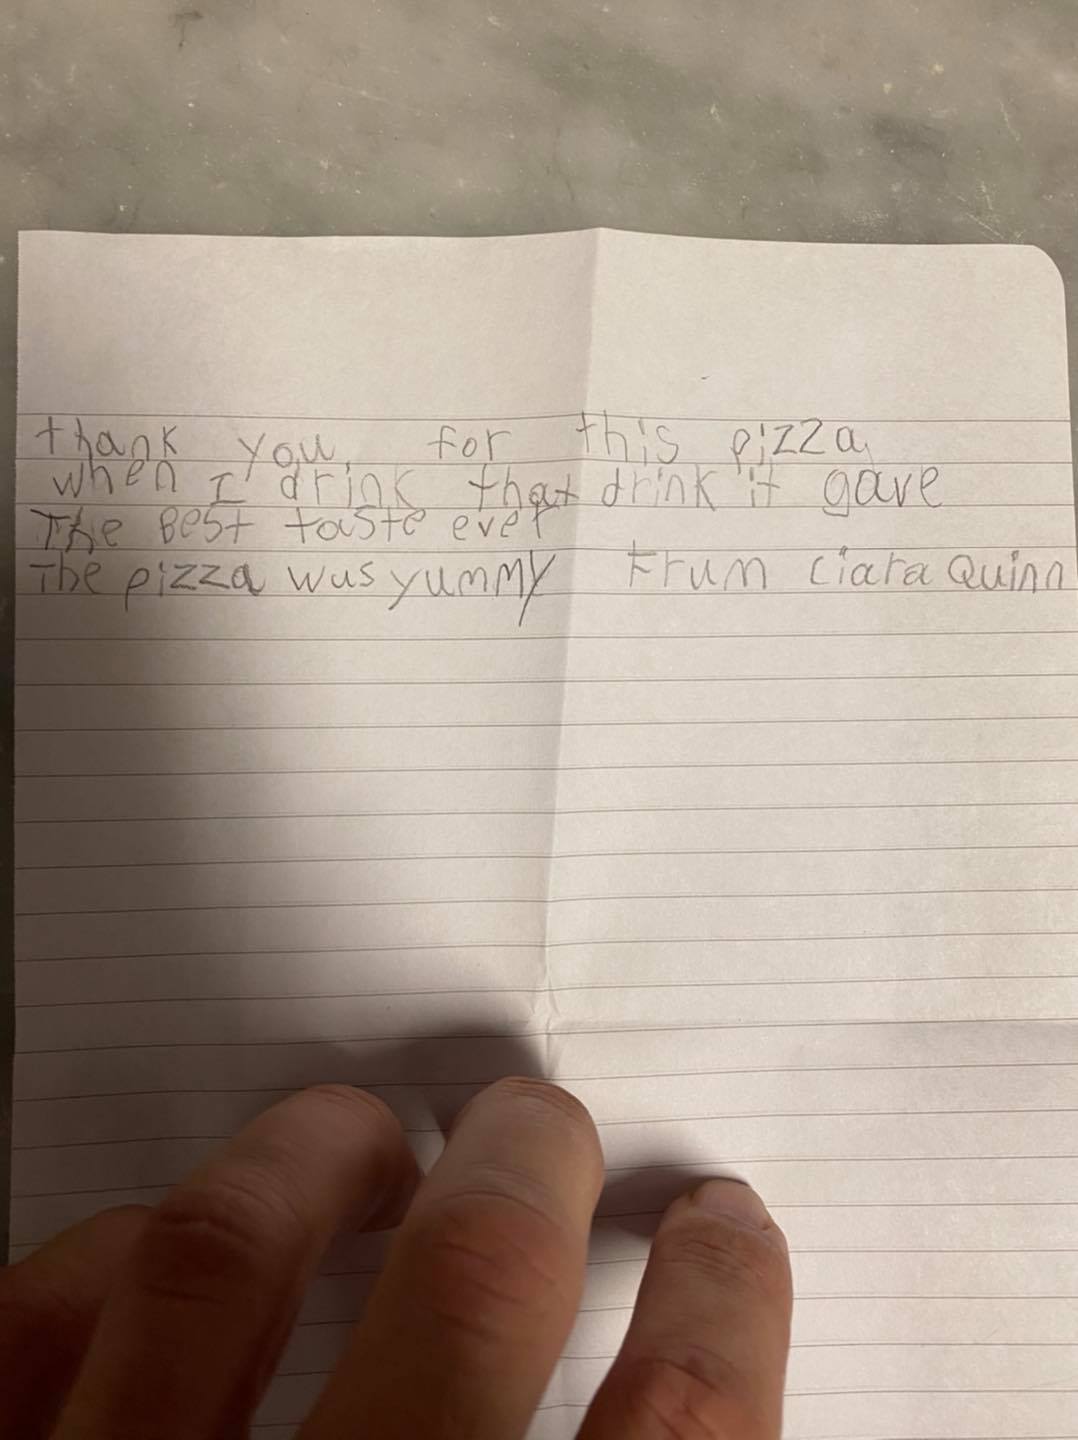 thank you for this pizza
when I drink that drink it gave
The Best taste ever
The pizza wus yummy Frum Ciara Quinn